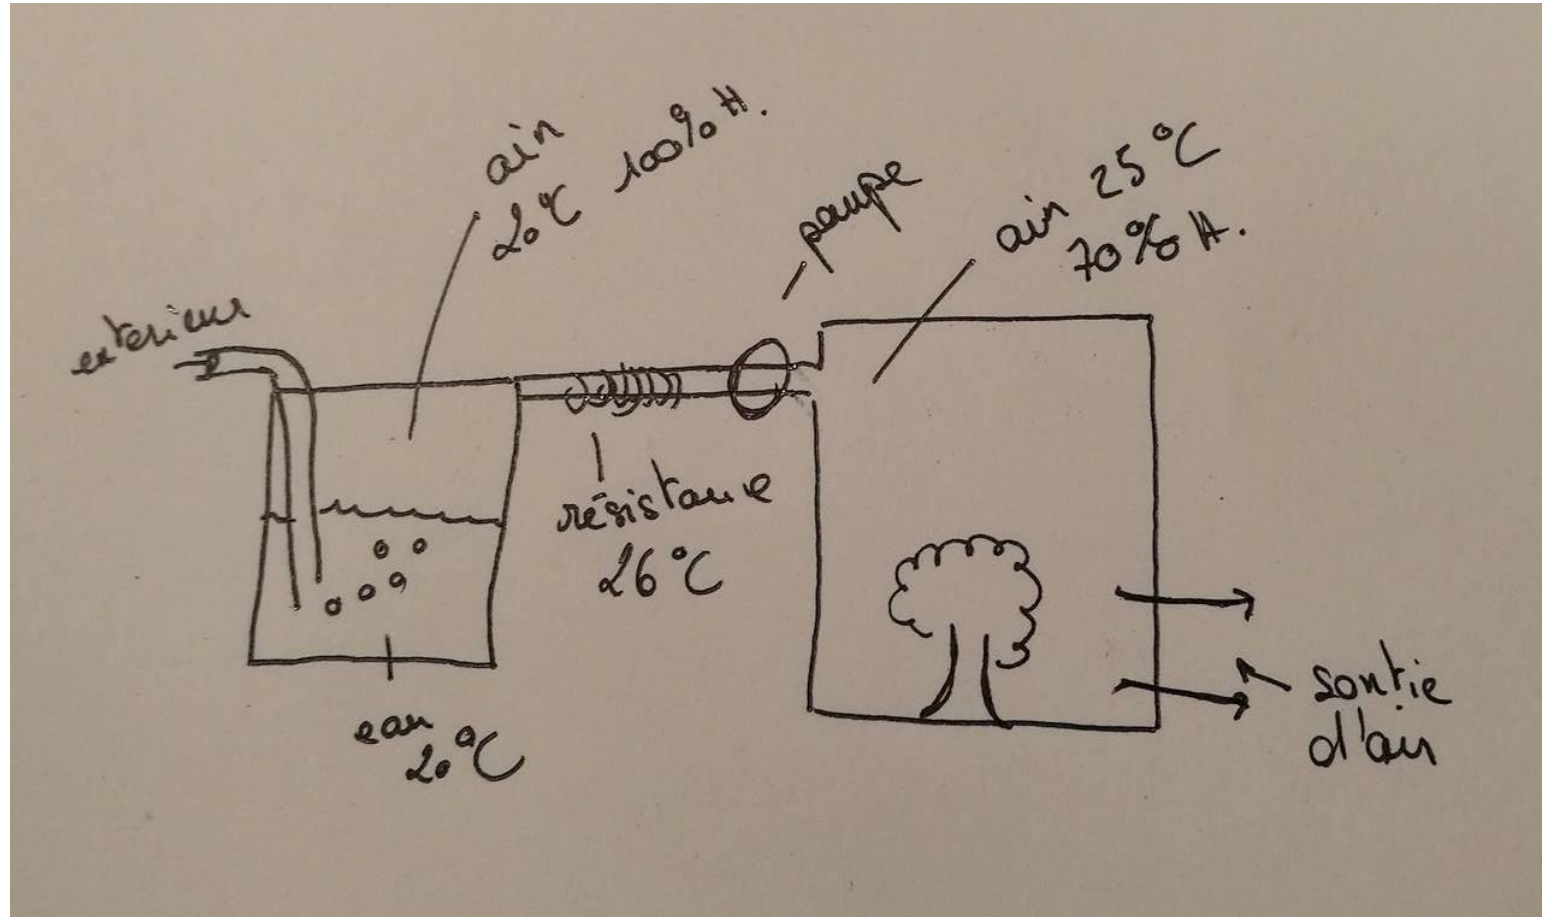 exterieur
air
20°C 100% H.
pompe
air 25°C
70% H.
résistance
26°C
eau
20°C
sortie
d'air